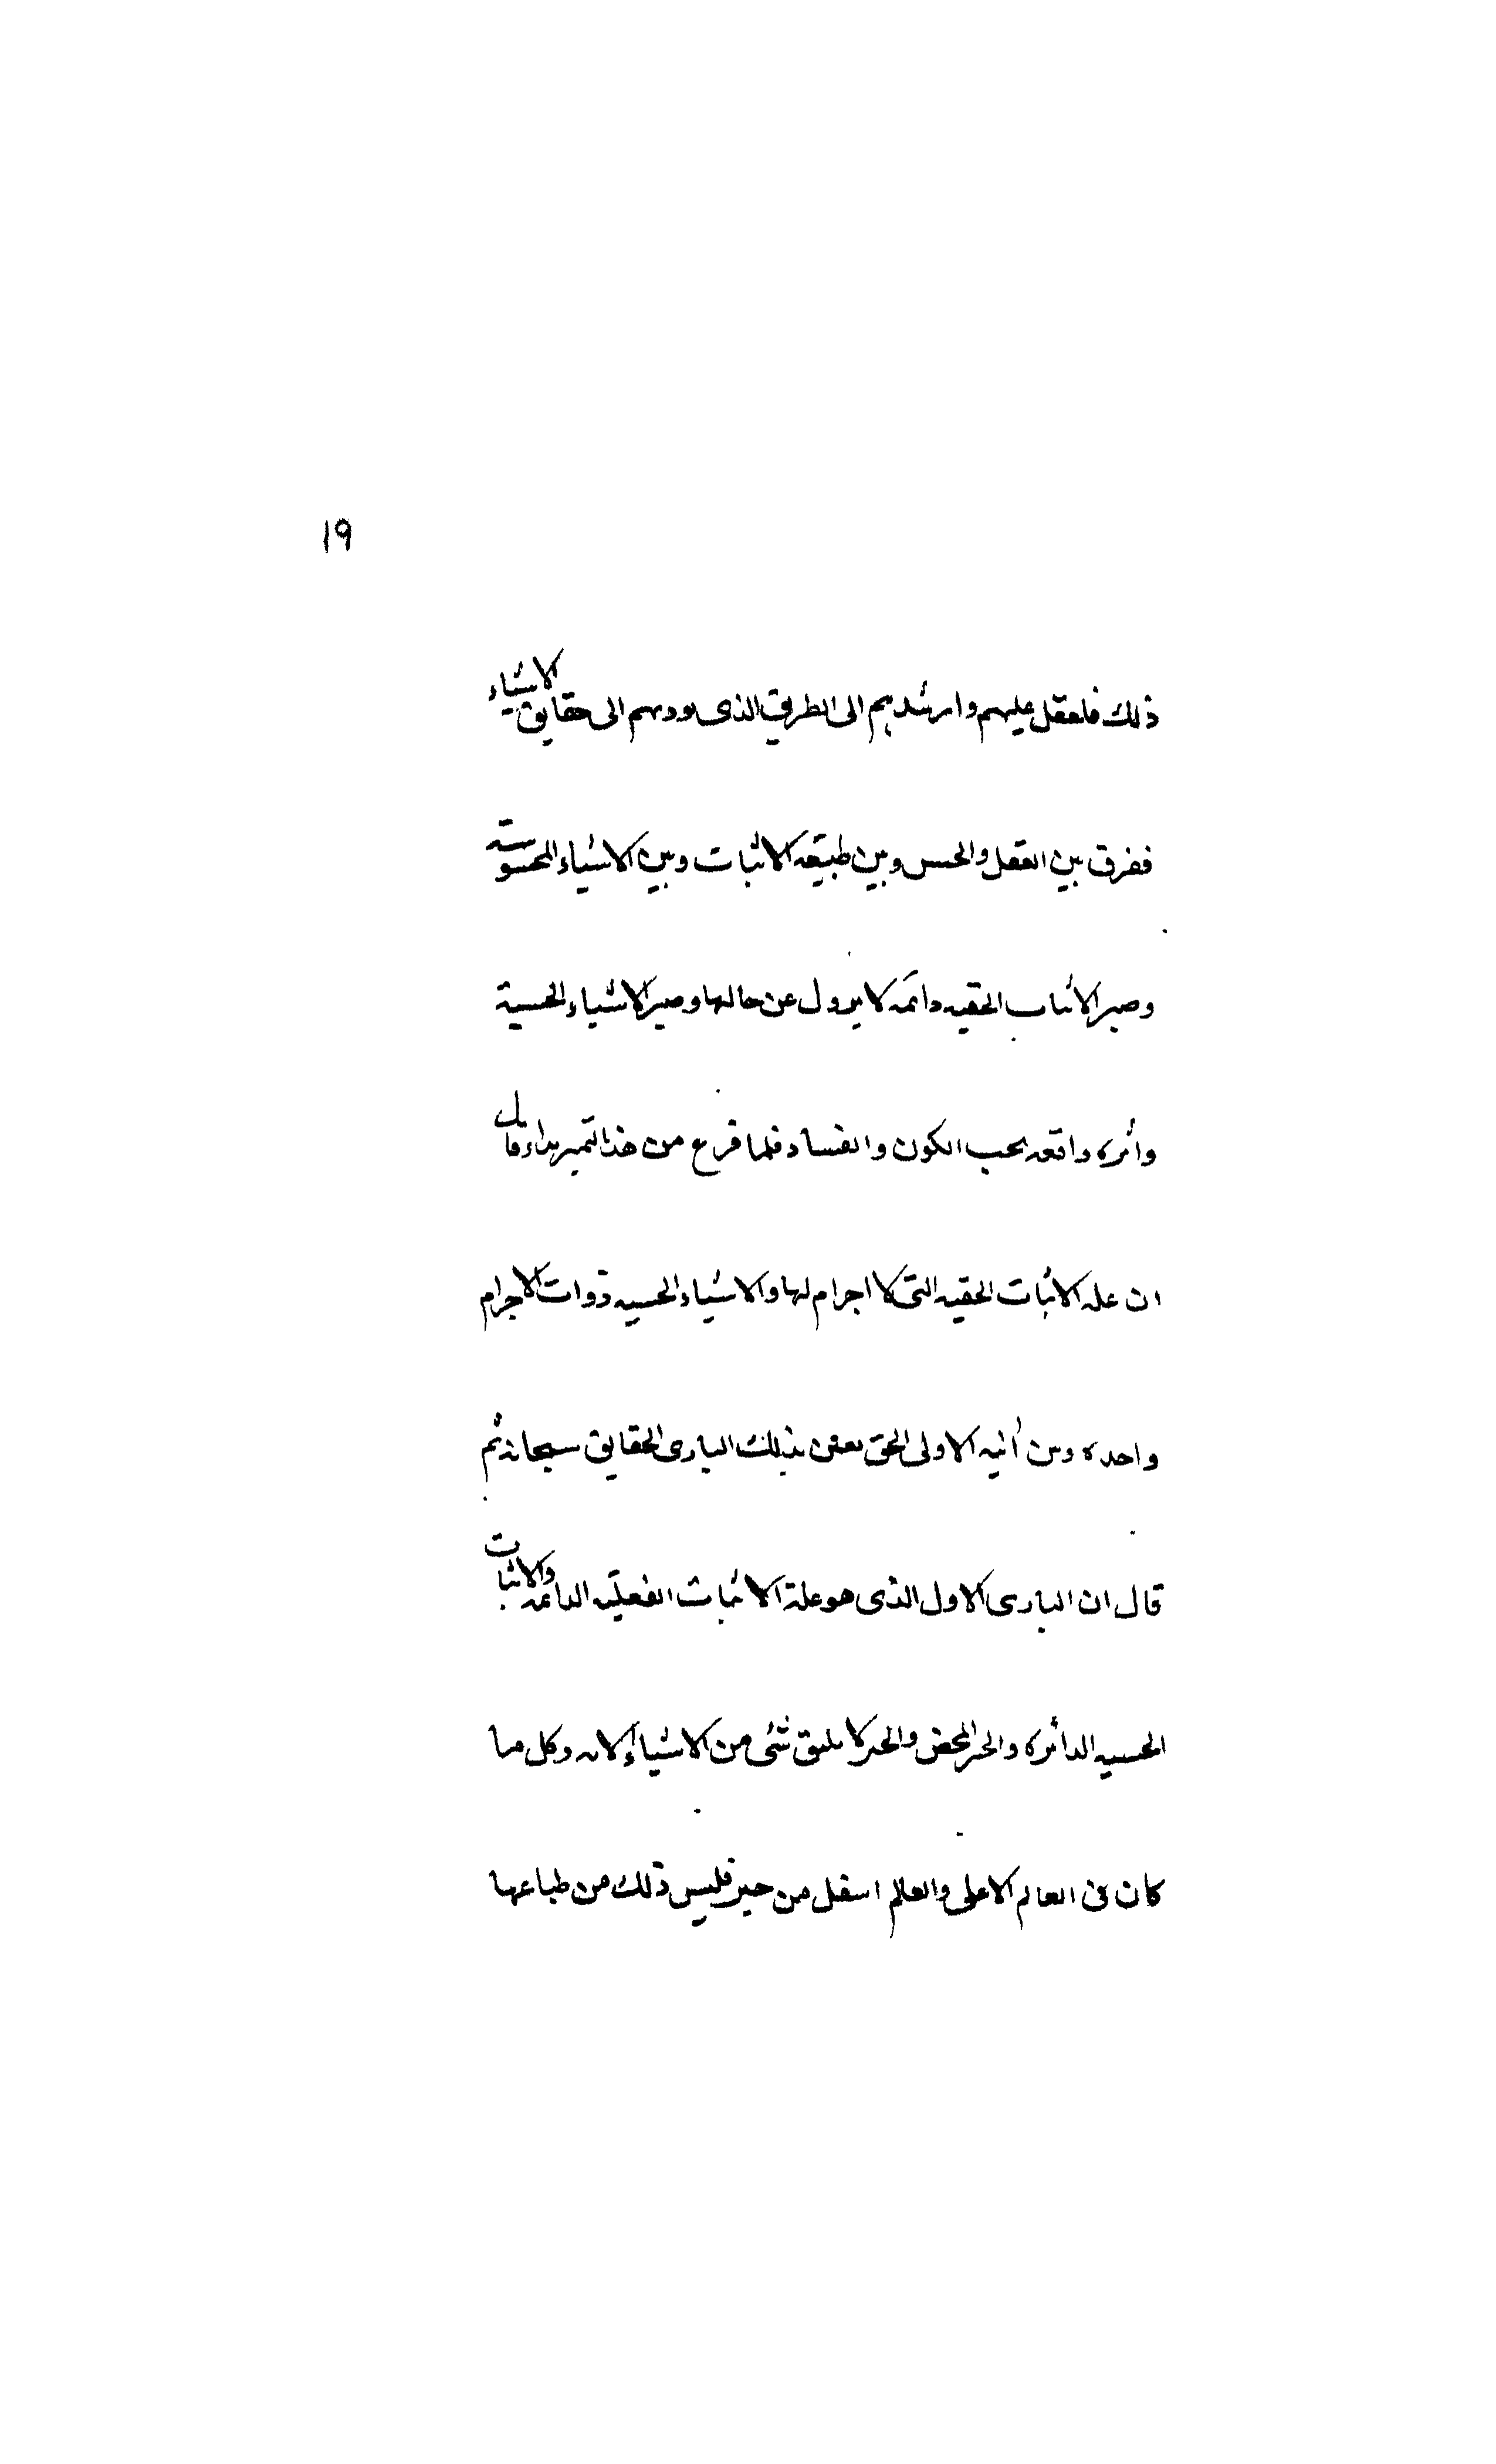 ١٩
ذلك فلعقل عليهم وارشدهم الى الطريق الذى يوديهم الى حقايق الاشياء
ففرق بين العقل والحس وبين طبيعه الاثبات وبين الاشياء المحسوسة
وصير الاثبات الحقيه دائمه لا يزول عن حالها وصير الاشياء الحسية
دائره واقعه بحب الكون والفساد فلما فرغ من هذا التميز بداء وقال
ان عله الاثبات الحقيه التى لا اجرام لها والاشياء الحسيه ذوات الاجرام
واحده ومن أنيه الاولى الحق يعنى بذلك البارى الحقايق سبحانه ثم
قال ان البارى الاول الذى هو علة الاثبات الفعليه الدائمه والاثبات
الحسيه الدائره والخير المحض والخير لا يليق شئى من الاشياء الا به وكل ما
كان فى العالم الاعلى والعالم اسفل من خير فليس ذلك من طباعها